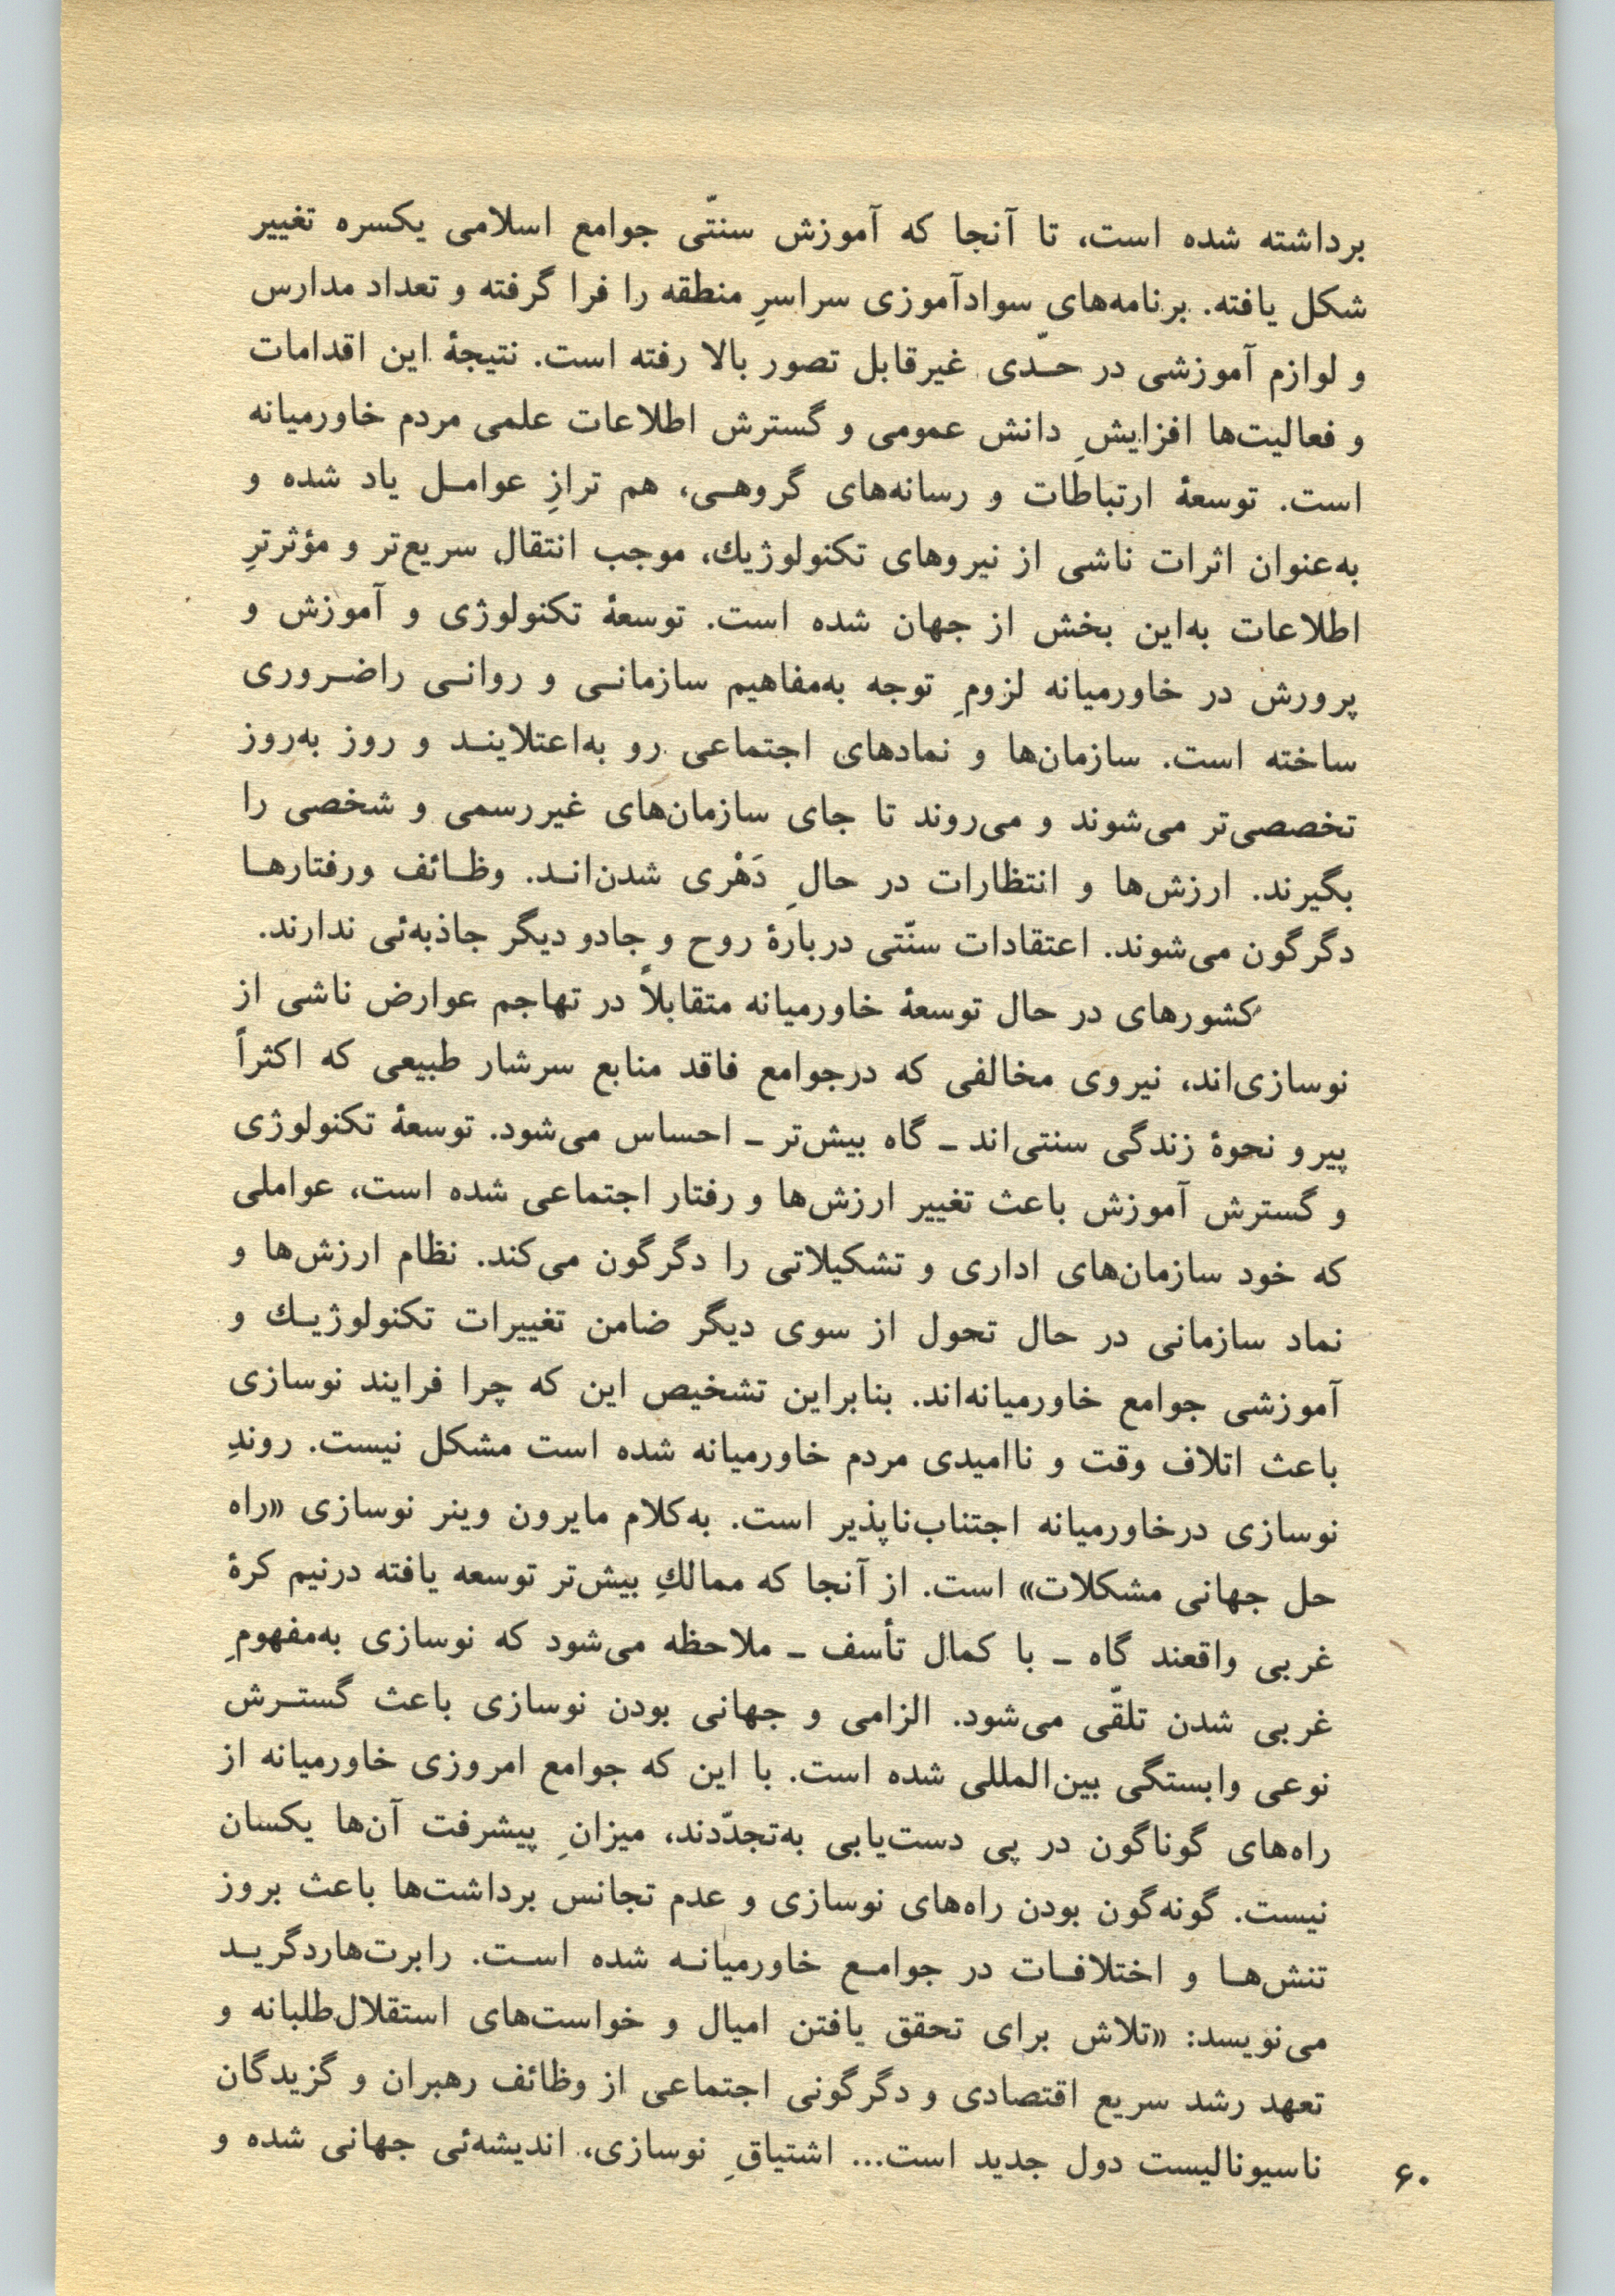 برداشته شده است، تا آنجا که آموزش سنتّی جوامع اسلامی یکسره تغییر
شکل یافته. برنامه‌های سوادآموزی سراسرِ منطقه را فرا گرفته و تعداد مدارس
و لوازم آموزشی در حـدّی غیرقابل تصور بالا رفته است. نتیجهٔ این اقدامات
و فعالیت‌ها افزایشِ دانش عمومی و گسترش اطلاعات علمی مردم خاورمیانه
است. توسعهٔ ارتباطات و رسانه‌های گروهـی، هم ترازِ عوامـل یاد شده و
به‌عنوان اثرات ناشی از نیروهای تکنولوژیك، موجب انتقال سریع‌تر و مؤثرترِ
اطلاعات به‌این بخش از جهان شده است. توسعهٔ تکنولوژی و آموزش و
پرورش در خاورمیانه لزومِ توجه به‌مفاهیم سازمانـی و روانـی راضـروری
ساخته است. سازمان‌ها و نمادهای اجتماعی رو به‌اعتلاینـد و روز به‌روز
تخصصی‌تر می‌شوند و می‌روند تا جای سازمان‌های غیررسمی و شخصی را
بگیرند. ارزش‌ها و انتظارات در حالِ دَهْری شدن‌انـد. وظـائف ورفتارهـا
دگرگون می‌شوند. اعتقادات سنّتی دربارهٔ روح و جادو دیگر جاذبه‌ئی ندارند.
کشورهای در حال توسعهٔ خاورمیانه متقابلاً در تهاجم عوارض ناشی از
نوسازی‌اند، نیروی مخالفی که درجوامع فاقد منابع سرشار طبیعی که اکثراً
پیرو نحوهٔ زندگی سنتی‌اند ـ گاه بیش‌تر ـ احساس می‌شود. توسعهٔ تکنولوژی
و گسترش آموزش باعث تغییر ارزش‌ها و رفتار اجتماعی شده است، عواملی
که خود سازمان‌های اداری و تشکیلاتی را دگرگون می‌کند. نظام ارزش‌ها و
نماد سازمانی در حال تحول از سوی دیگر ضامن تغییرات تکنولوژیـك و
آموزشی جوامع خاورمیانه‌اند. بنابراین تشخیص این که چرا فرایند نوسازی
باعث اتلاف وقت و ناامیدی مردم خاورمیانه شده است مشکل نیست. روندِ
نوسازی درخاورمیانه اجتناب‌ناپذیر است. به‌کلام مایرون وینر نوسازی «راه
حل جهانی مشکلات» است. از آنجا که ممالكِ بیش‌تر توسعه یافته درنیم کرهٔ
غربی واقعند گاه ـ با کمال تأسف ـ ملاحظه می‌شود که نوسازی به‌مفهومِ
غربی شدن تلقّی می‌شود. الزامی و جهانی بودن نوسازی باعث گستـرش
نوعی وابستگی بین‌المللی شده است. با این که جوامع امروزی خاورمیانه از
راه‌های گوناگون در پی دست‌یابی به‌تجدّدند، میزانِ پیشرفت آن‌ها یکسان
نیست. گونه‌گون بودن راه‌های نوسازی و عدم تجانس برداشت‌ها باعث بروز
تنش‌هـا و اختلافـات در جوامـع خاورمیانـه شده اسـت. رابرت‌هاردگریـد
می‌نویسد: «تلاش برای تحقق یافتن امیال و خواست‌های استقلال‌طلبانه و
تعهد رشد سریع اقتصادی و دگرگونی اجتماعی از وظائف رهبران و گزیدگان
ناسیونالیست دول جدید است... اشتیاقِ نوسازی، اندیشه‌ئی جهانی شده و
۶۰